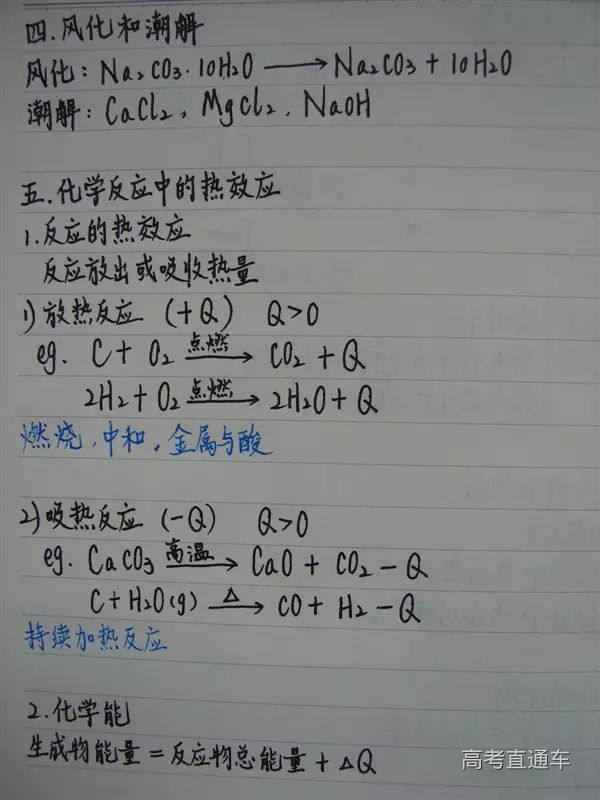 四.风化和潮解
风化: Na₂CO₃·10H₂O ⟶ Na₂CO₃ + 10H₂O
潮解: CaCl₂, MgCl₂, NaOH
五.化学反应中的热效应
1.反应的热效应
反应放出或吸收热量
1)放热反应 (+Q) Q>0
eg. C + O₂ 点燃⟶ CO₂ + Q
2H₂ + O₂ 点燃⟶ 2H₂O + Q
燃烧,中和,金属与酸
2)吸热反应 (-Q) Q>0
eg. CaCO₃ 高温⟶ CaO + CO₂ - Q
C + H₂O(g) △⟶ CO + H₂ - Q
持续加热反应
2.化学能
生成物能量 = 反应物总能量 + △Q
高考直通车